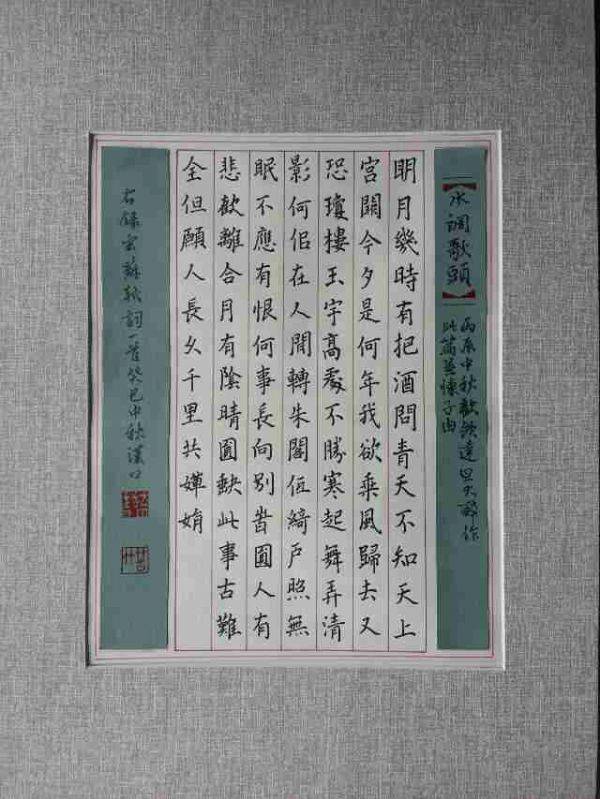 【水調歌頭】
丙辰中秋歡飲達旦大醉作
此篇兼懷子由
明月幾時有把酒問青天不知天上
宮闕今夕是何年我欲乘風歸去又
恐瓊樓玉宇高處不勝寒起舞弄清
影何佀在人間轉朱閣低綺戶照無
眠不應有恨何事長向別旹圓人有
悲歡離合月有陰晴圓缺此事古難
全但願人長久千里共嬋娟
右錄宋蘇軾詞一首癸巳中秋漢口